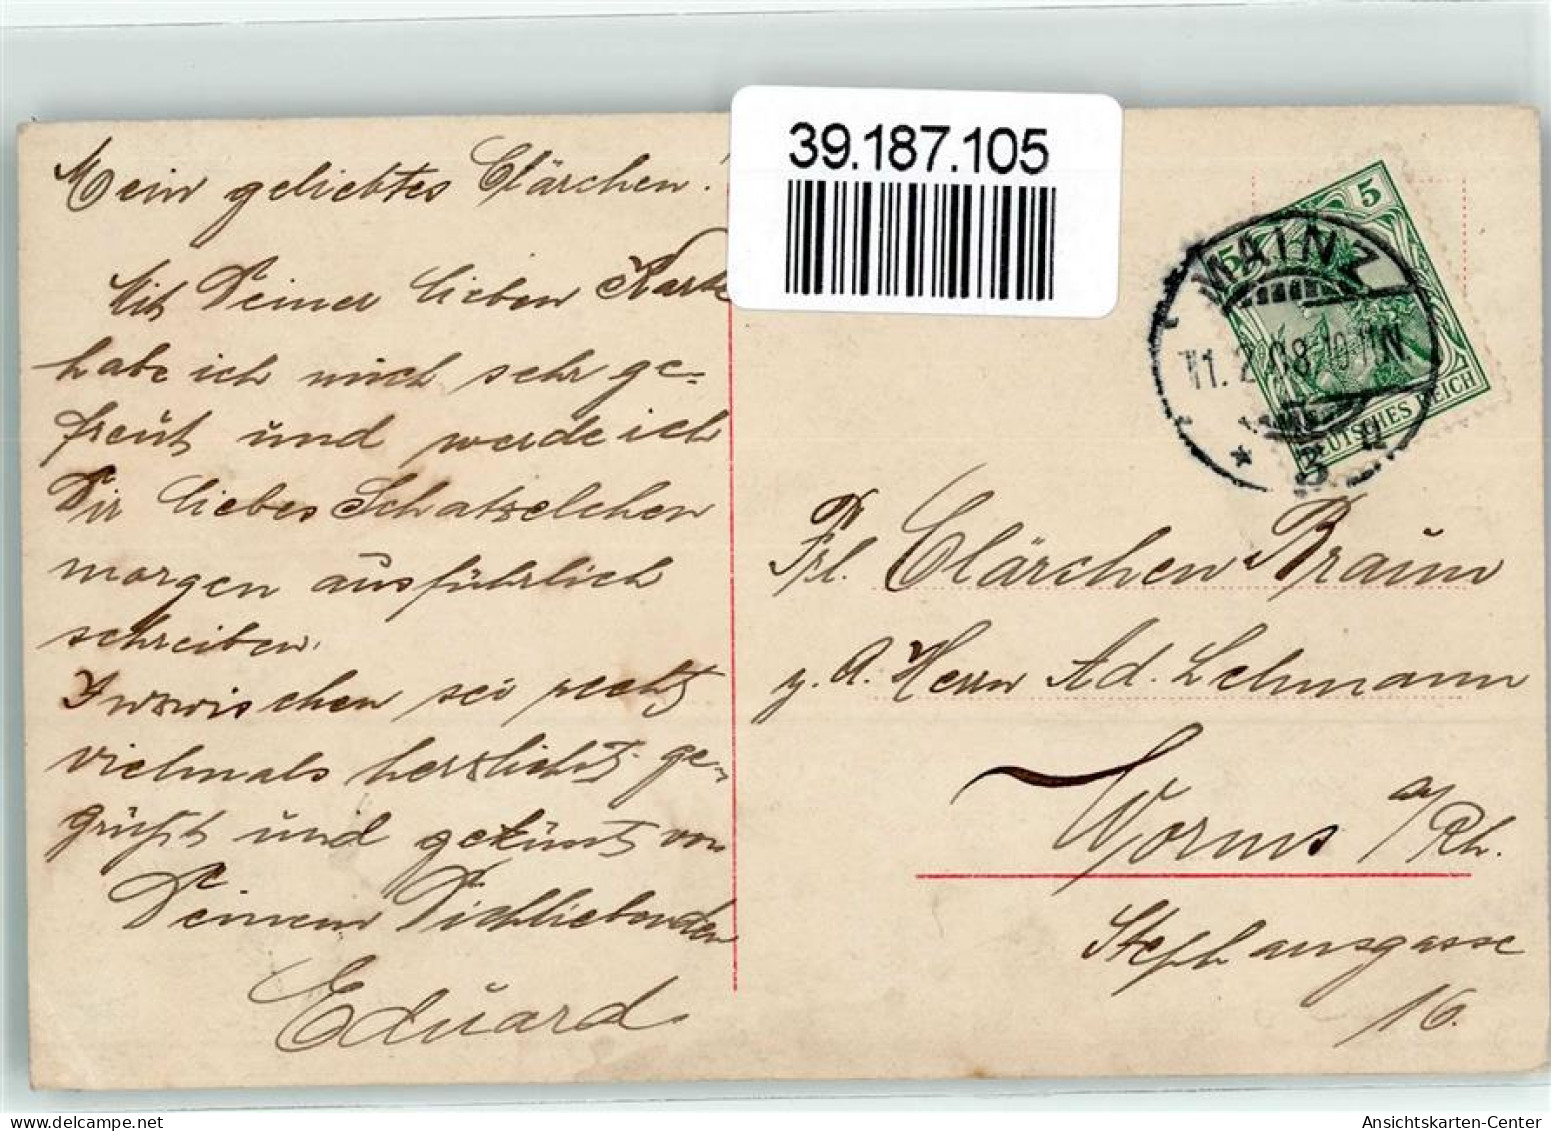 Mein geliebtes Clärchen!
Mit Deiner lieben Karte
habe ich mich sehr ge-
freut und werde ich
Dir liebes Schatzelchen
morgen ausführlich
schreiben.
Inzwischen sei recht
vielmals herzlichst ge-
grüßt und geküsst von
Deinem Dichliebenden
Eduard
39.187.105
5
5
MAINZ
11.2.08.10-11N.
* 3 u
DEUTSCHES REICH
Frl. Clärchen Braun
z. A. Herrn Ad. Lehmann
Worms a/Rh.
Stephansgasse
16.
delcampe.net
Ansichtskarten-Center